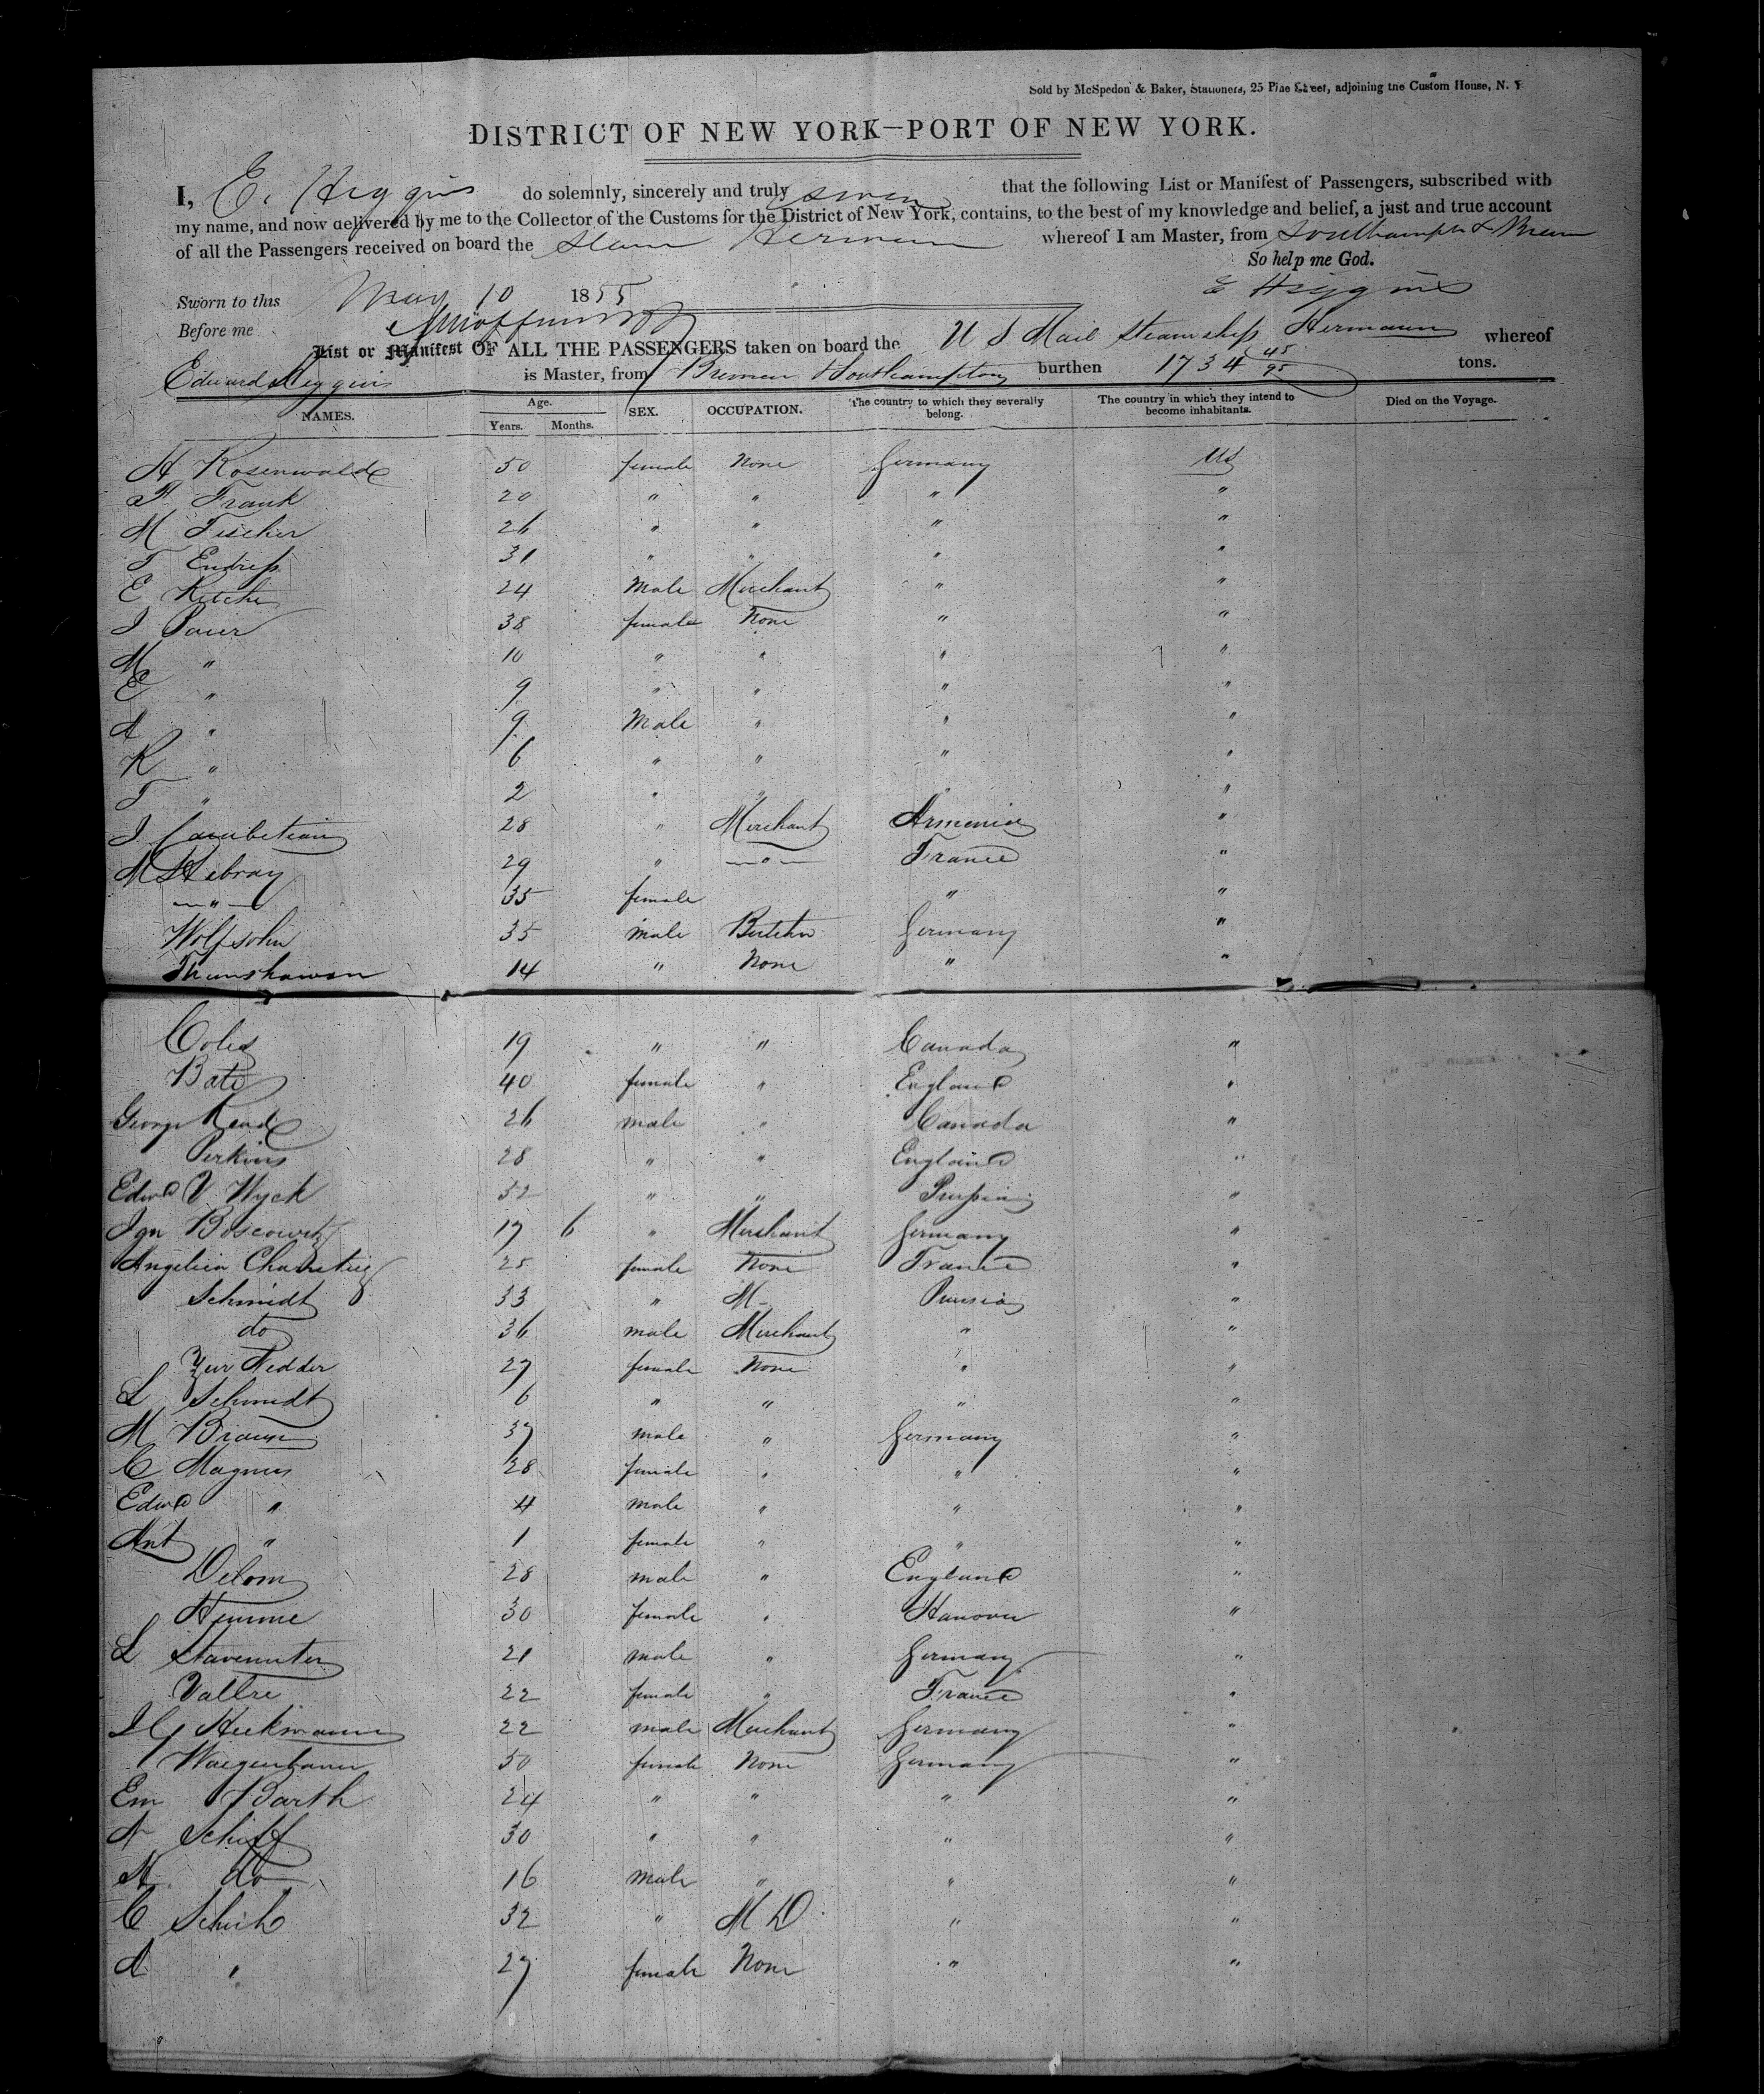 Sold by McSpedon & Baker, Stationers, 25 Pine Street, adjoining the Custom House, N. Y.
DISTRICT OF NEW YORK—PORT OF NEW YORK.
I, E. Higgins do solemnly, sincerely and truly swear that the following List or Manifest of Passengers, subscribed with
my name, and now delivered by me to the Collector of the Customs for the District of New York, contains, to the best of my knowledge and belief, a just and true account
of all the Passengers received on board the Steam Hermann whereof I am Master, from Southampton & Bremen
So help me God.
Sworn to this May 10 1855 E Higgins
Before me
List or Manifest OF ALL THE PASSENGERS taken on board the U S Mail Steamship Hermann whereof
Edward Higgins is Master, from Bremen Southampton burthen 1734 45/95 tons.
NAMES. Age. Years. Months. SEX. OCCUPATION. The country to which they severally belong. The country in which they intend to become inhabitants. Died on the Voyage.
H Rosenwald 50 female None Germany US
F Frank 20 " " " "
M Fischer 26 " " " "
T Endress 31 " " " "
E 24 Male Merchant " "
J 38 female None " "
M " 10 " " " "
E " 9 " " " "
A " 9 Male " " "
K " 6 " " " "
T " 2 " " " "
J 28 " Merchant Armenia "
29 " —"— France "
—"— 35 female " "
Wolfsohn 35 male Butcher Germany "
14 " None " "
Coles 19 " " Canada "
Bate 40 female " England "
George Read 26 male " Canada "
Perkins 28 " " England "
Edwd V Wyck 32 " " Prussia "
Ign Boscowitz 17 6 " Merchant Germany "
Angelica 25 female None France "
Schmidt 33 " M— Prussia "
do 36 male Merchant " "
Zur Nedder 27 female None " "
L Schmidt 6 " " " "
M Braun 37 male " Germany "
C Magnus 28 female " " "
Edwd " 4 male " " "
Ant " 1 female " " "
Delom 28 male " England "
Hemme 30 female " Hanover "
L 21 male " Germany "
Vallre 22 female " France "
Heekmann 22 male Merchant Germany "
Waegenbauer 50 female None Germany "
Em Barth 24 " " " "
A Schiff 30 " " " "
H do 16 male " " "
C Schih 32 " M D " "
A " 27 female None " "